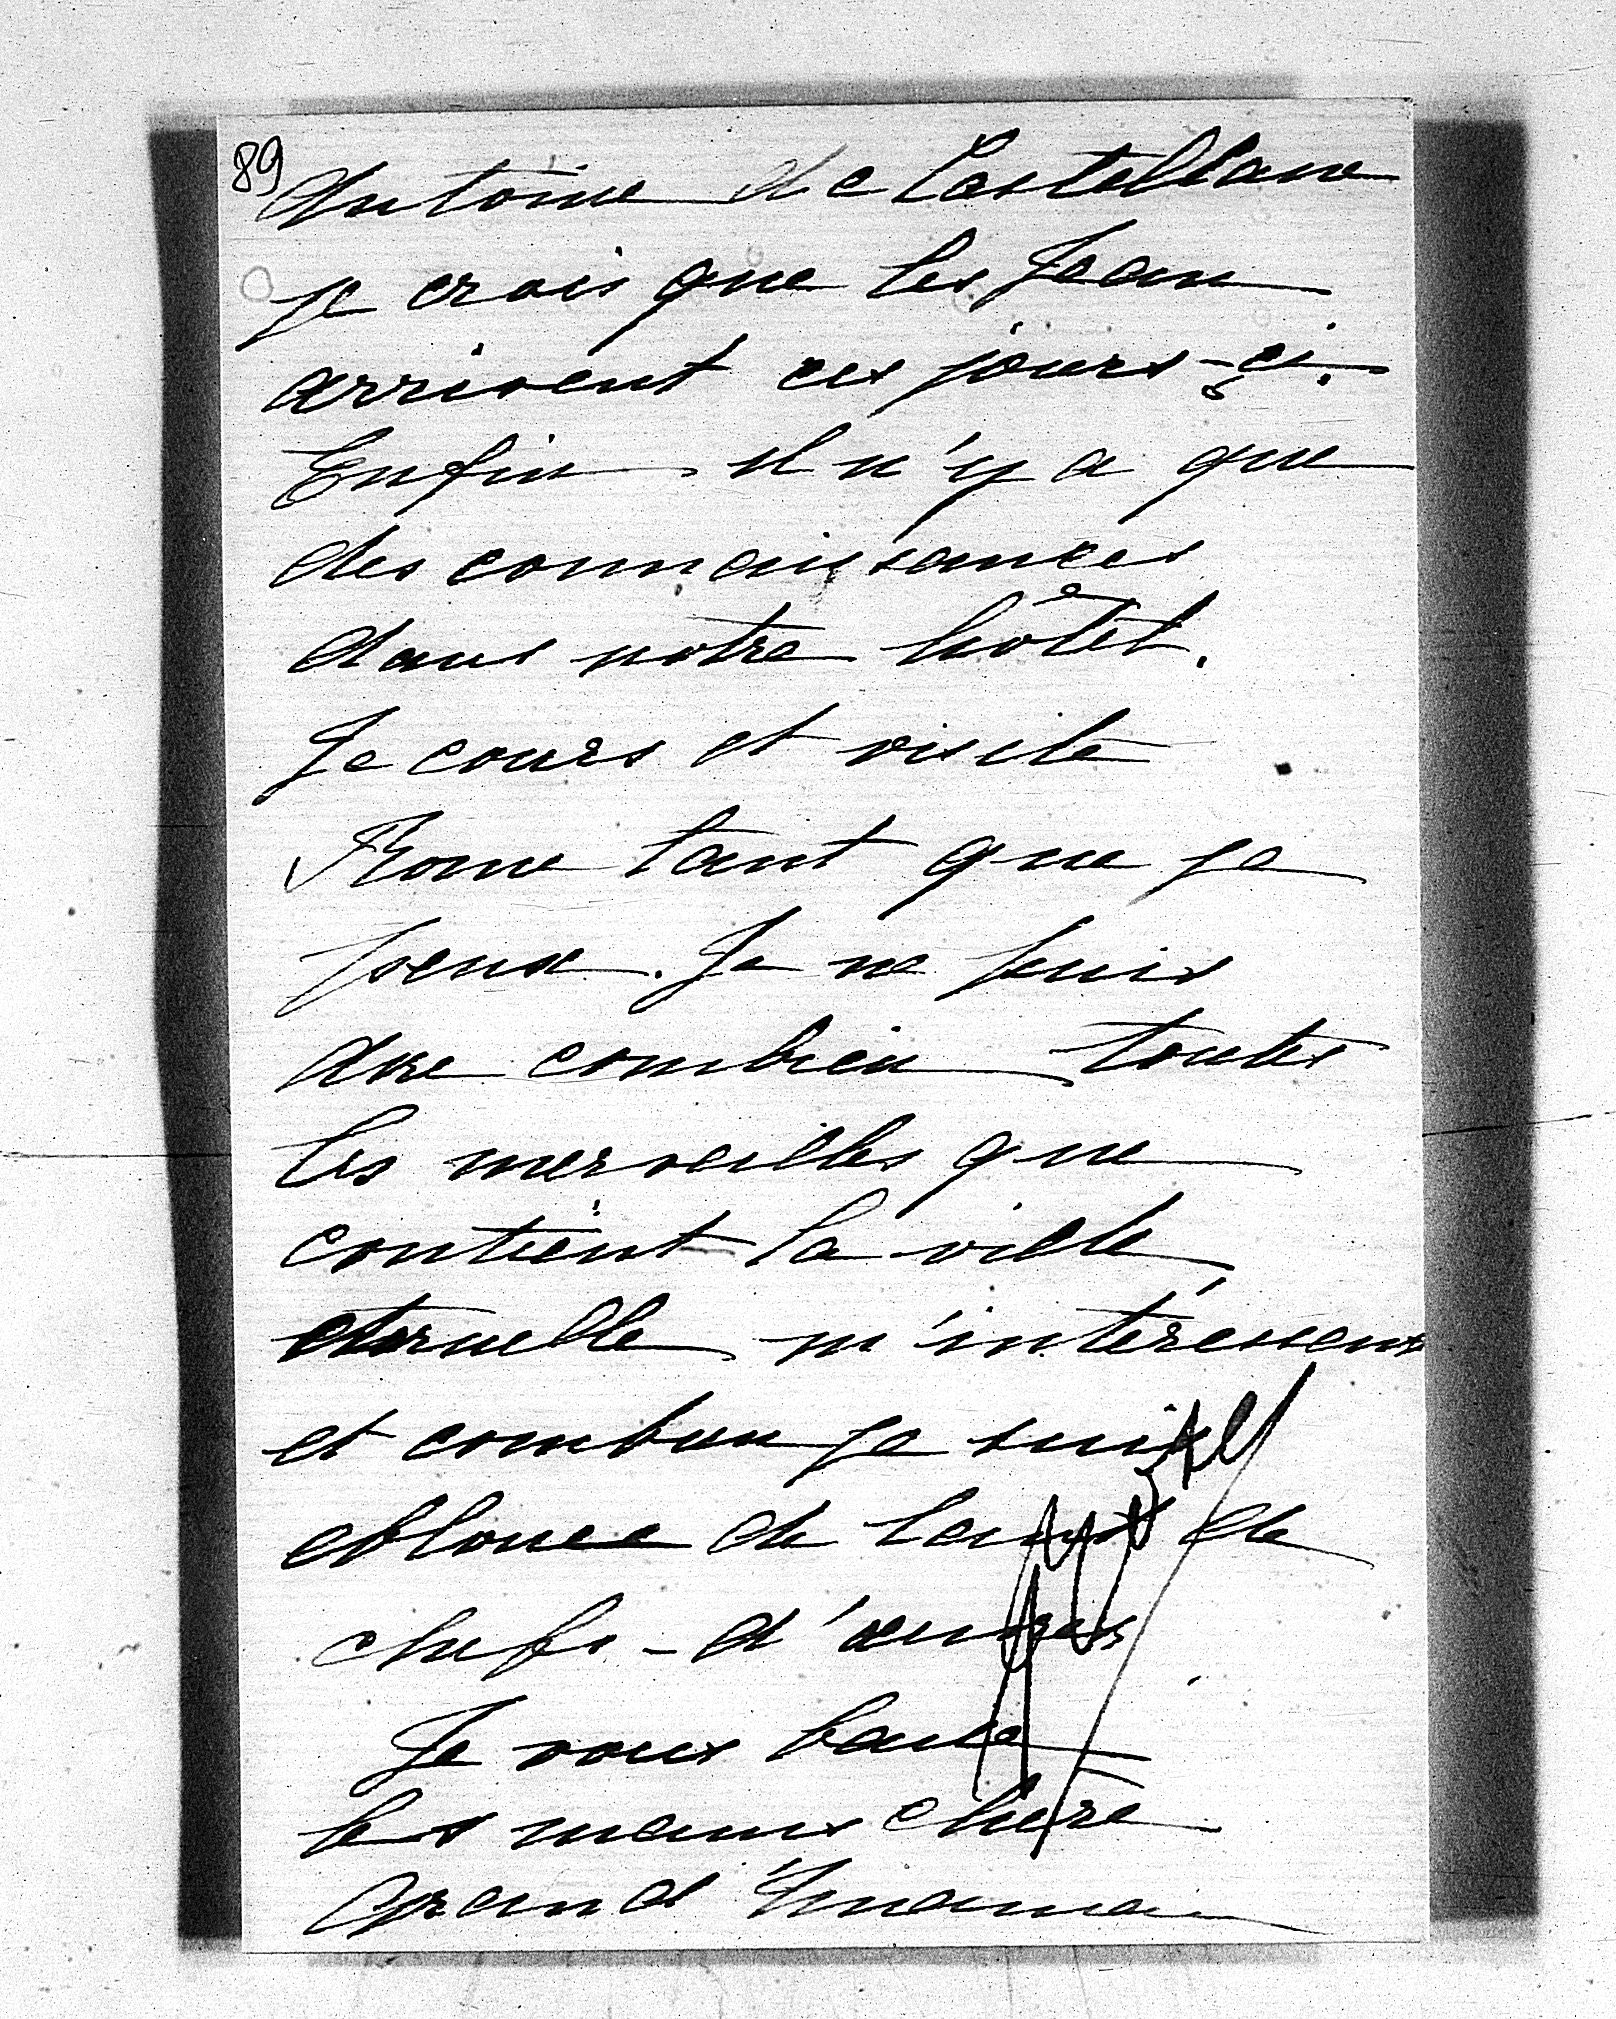 89
Antoine de Castellane
je crois que les Jean
arrivent ces jours-ci.
Enfin il n'y a que
des connaissances
dans notre hôtel.
Je cours et visite
Rome tant que je
peux. Je ne puis
dire combien toutes
les merveilles que
contient la ville
eternelle m'intéressent
et combien je suis
eblouie de tant de
chefs-d'œuvres.
Je vous baise
les mains chère
Grand'maman